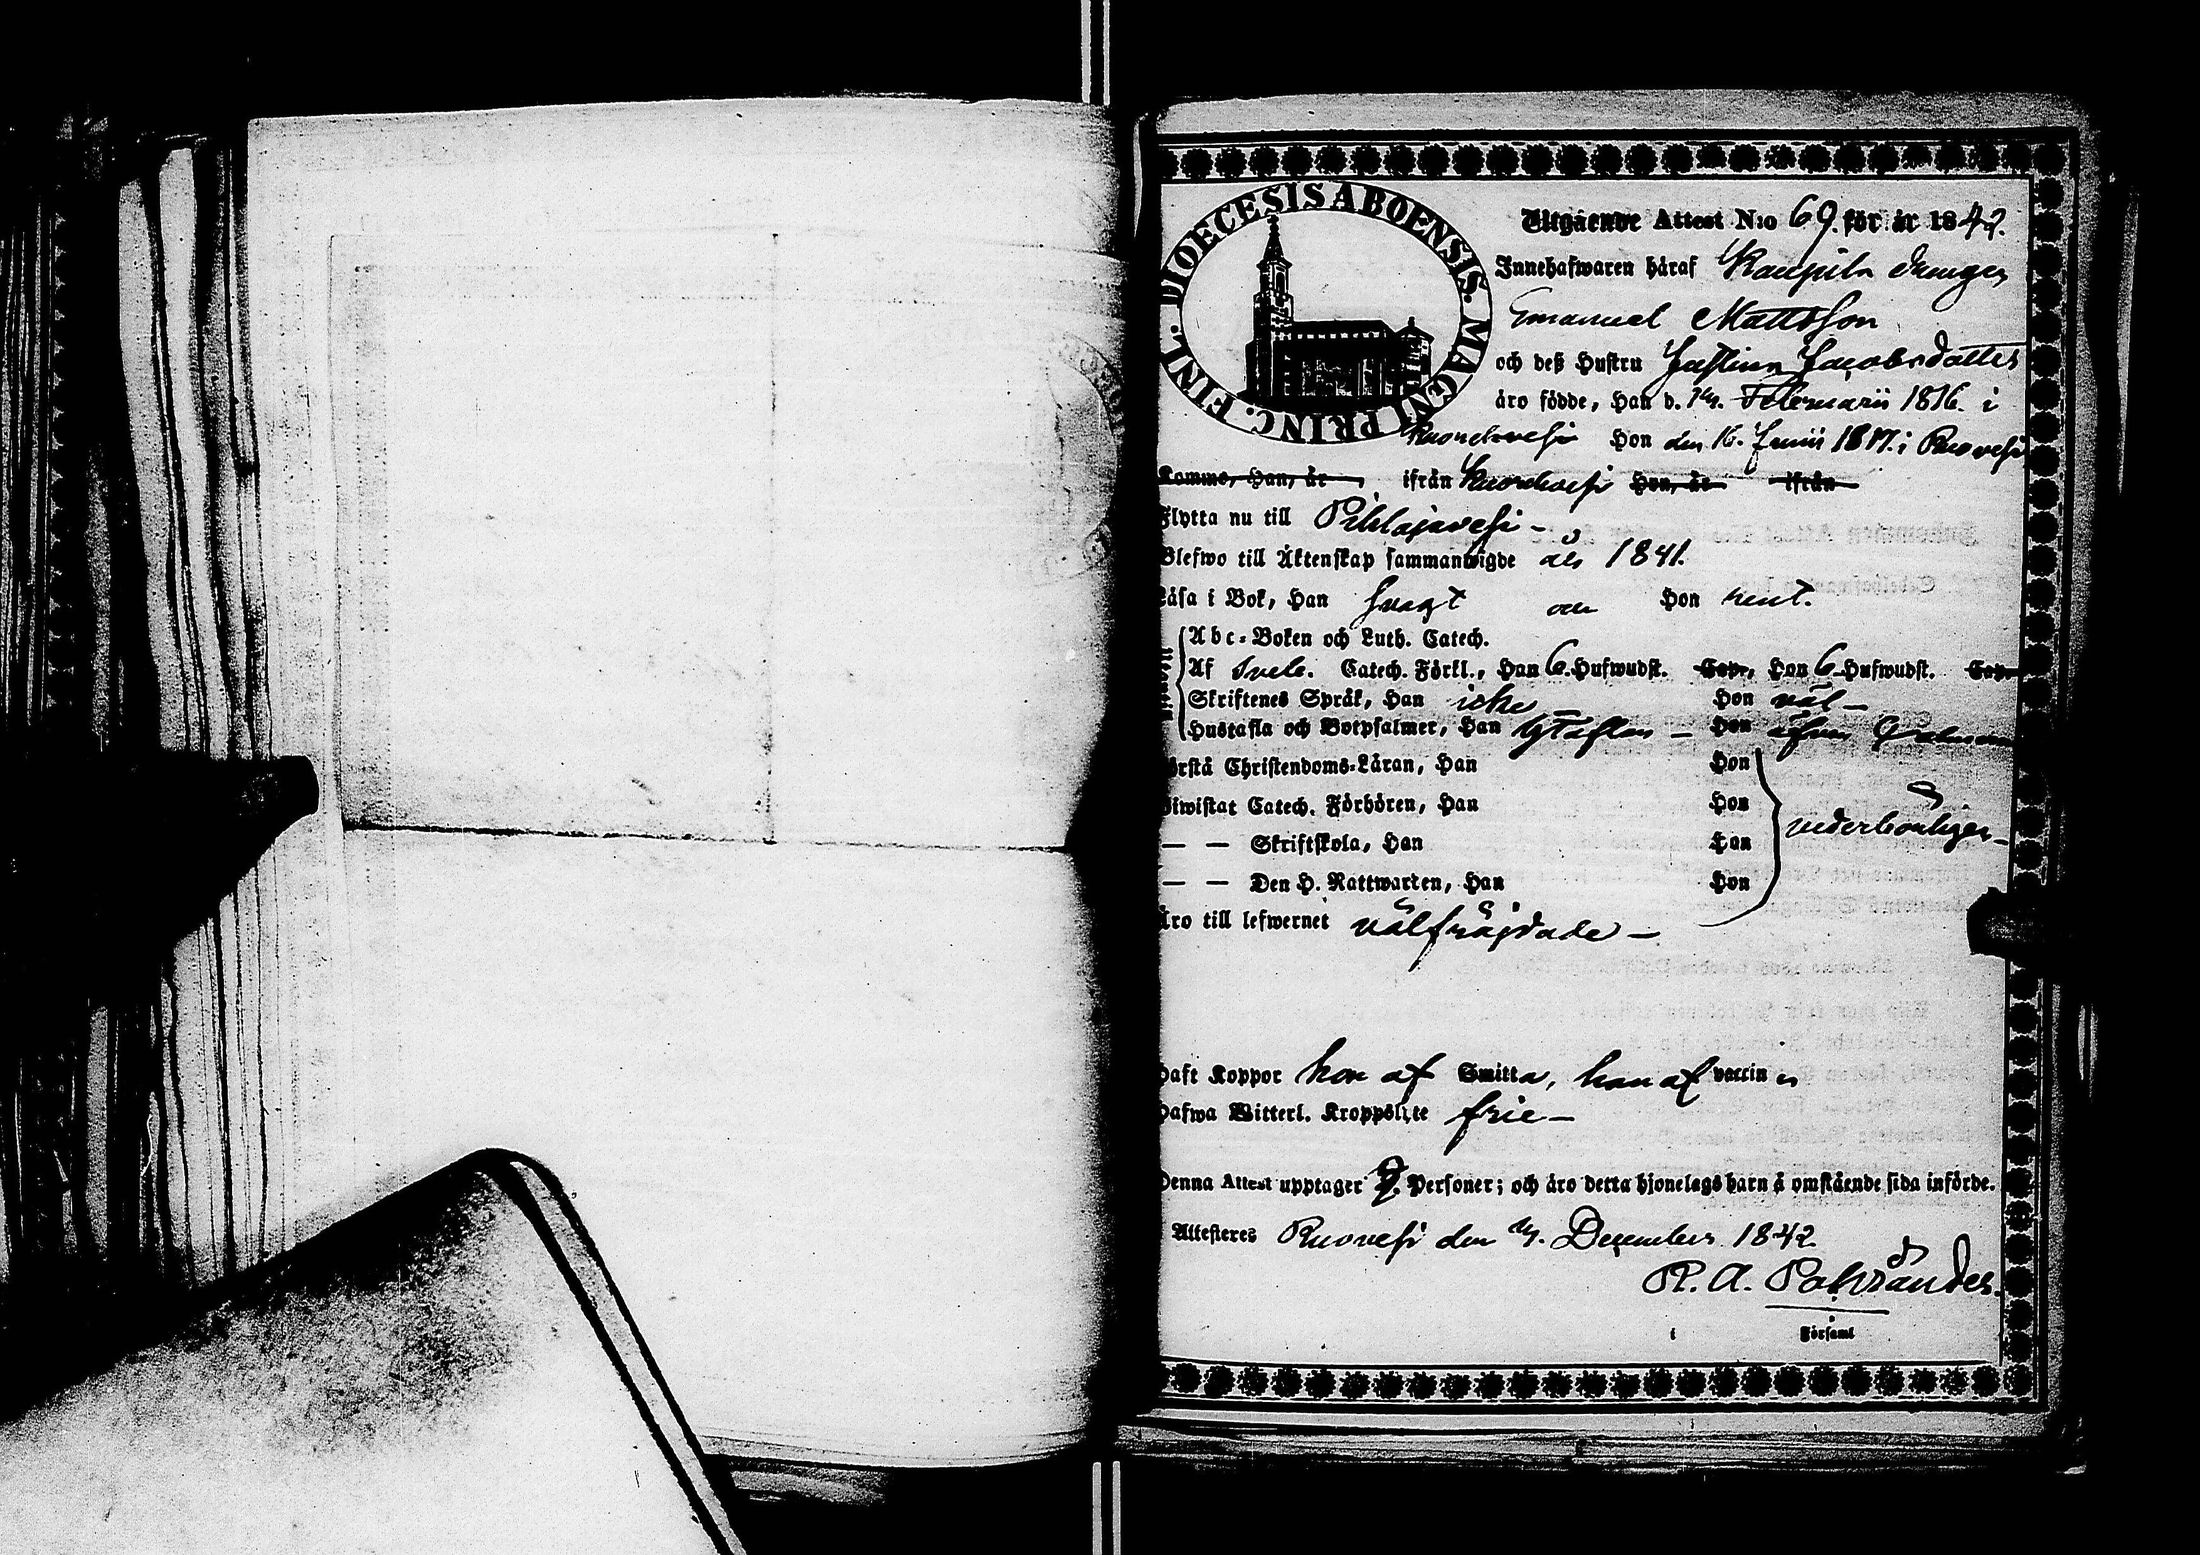 DIOECESIS ABOENSIS. MAGNI PRINC. FINL.
Utgående Attest N:o 69. för år 1842.
Innehafwaren håraf Kaupila drengen
Emanuel Mattsson
och deß Hustru Justina Jacobsdotter
äro födde, Han d. Februarii 1816. i
Kuorehvesi Hon den 16. Junii 1817. i Ruovesi
Komme, Han, år ifrån Kuorehvesi Hon, år ifrån
Flytta nu till Pihlajavesi –
Blefwo till Äktenskap sammanwigde år 1841.
Läsa i Bok, Han svagt och Hon rent.
Abc-Boken och Luth. Catech.
Af Sveb. Catech. Förkl., Han 6. Hufwudst. Cap., Hon 6 Hufwudst. Cap.
Skriftenes Språk, Han icke Hon väl –
Hustafla och Botpsalmer, Han – Hon äfven
Förstå Christendoms-Läran, Han Hon
Biwistat Catech. Förhören, Han Hon
— — Skriftskola, Han Hon vederbörligen –
— — Den H. Nattwarden, Han Hon
Äro till lefwernet välfräjdade –
Haft Koppor hon af Smitta, han af vaccin
Hafwa Witterl. Kroppslyte frie –
Denna Attest upptager 2. Personer; och äro detta hjonelags barn å omstående sida införde.
Attesteres Ruovesi den December 1842
i Församl